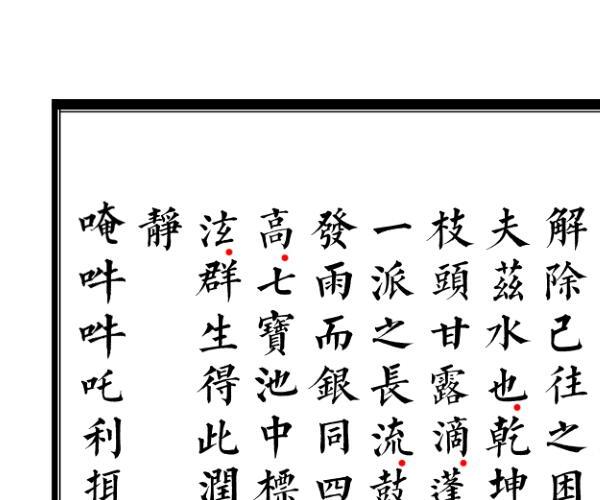 解除己往之困
夫茲水也乾坤
枝頭甘露滴蓬
一派之長流鼓
發雨而銀同四
高七寶池中標
泫群生得此潤
靜
唵吽吽吒利挕